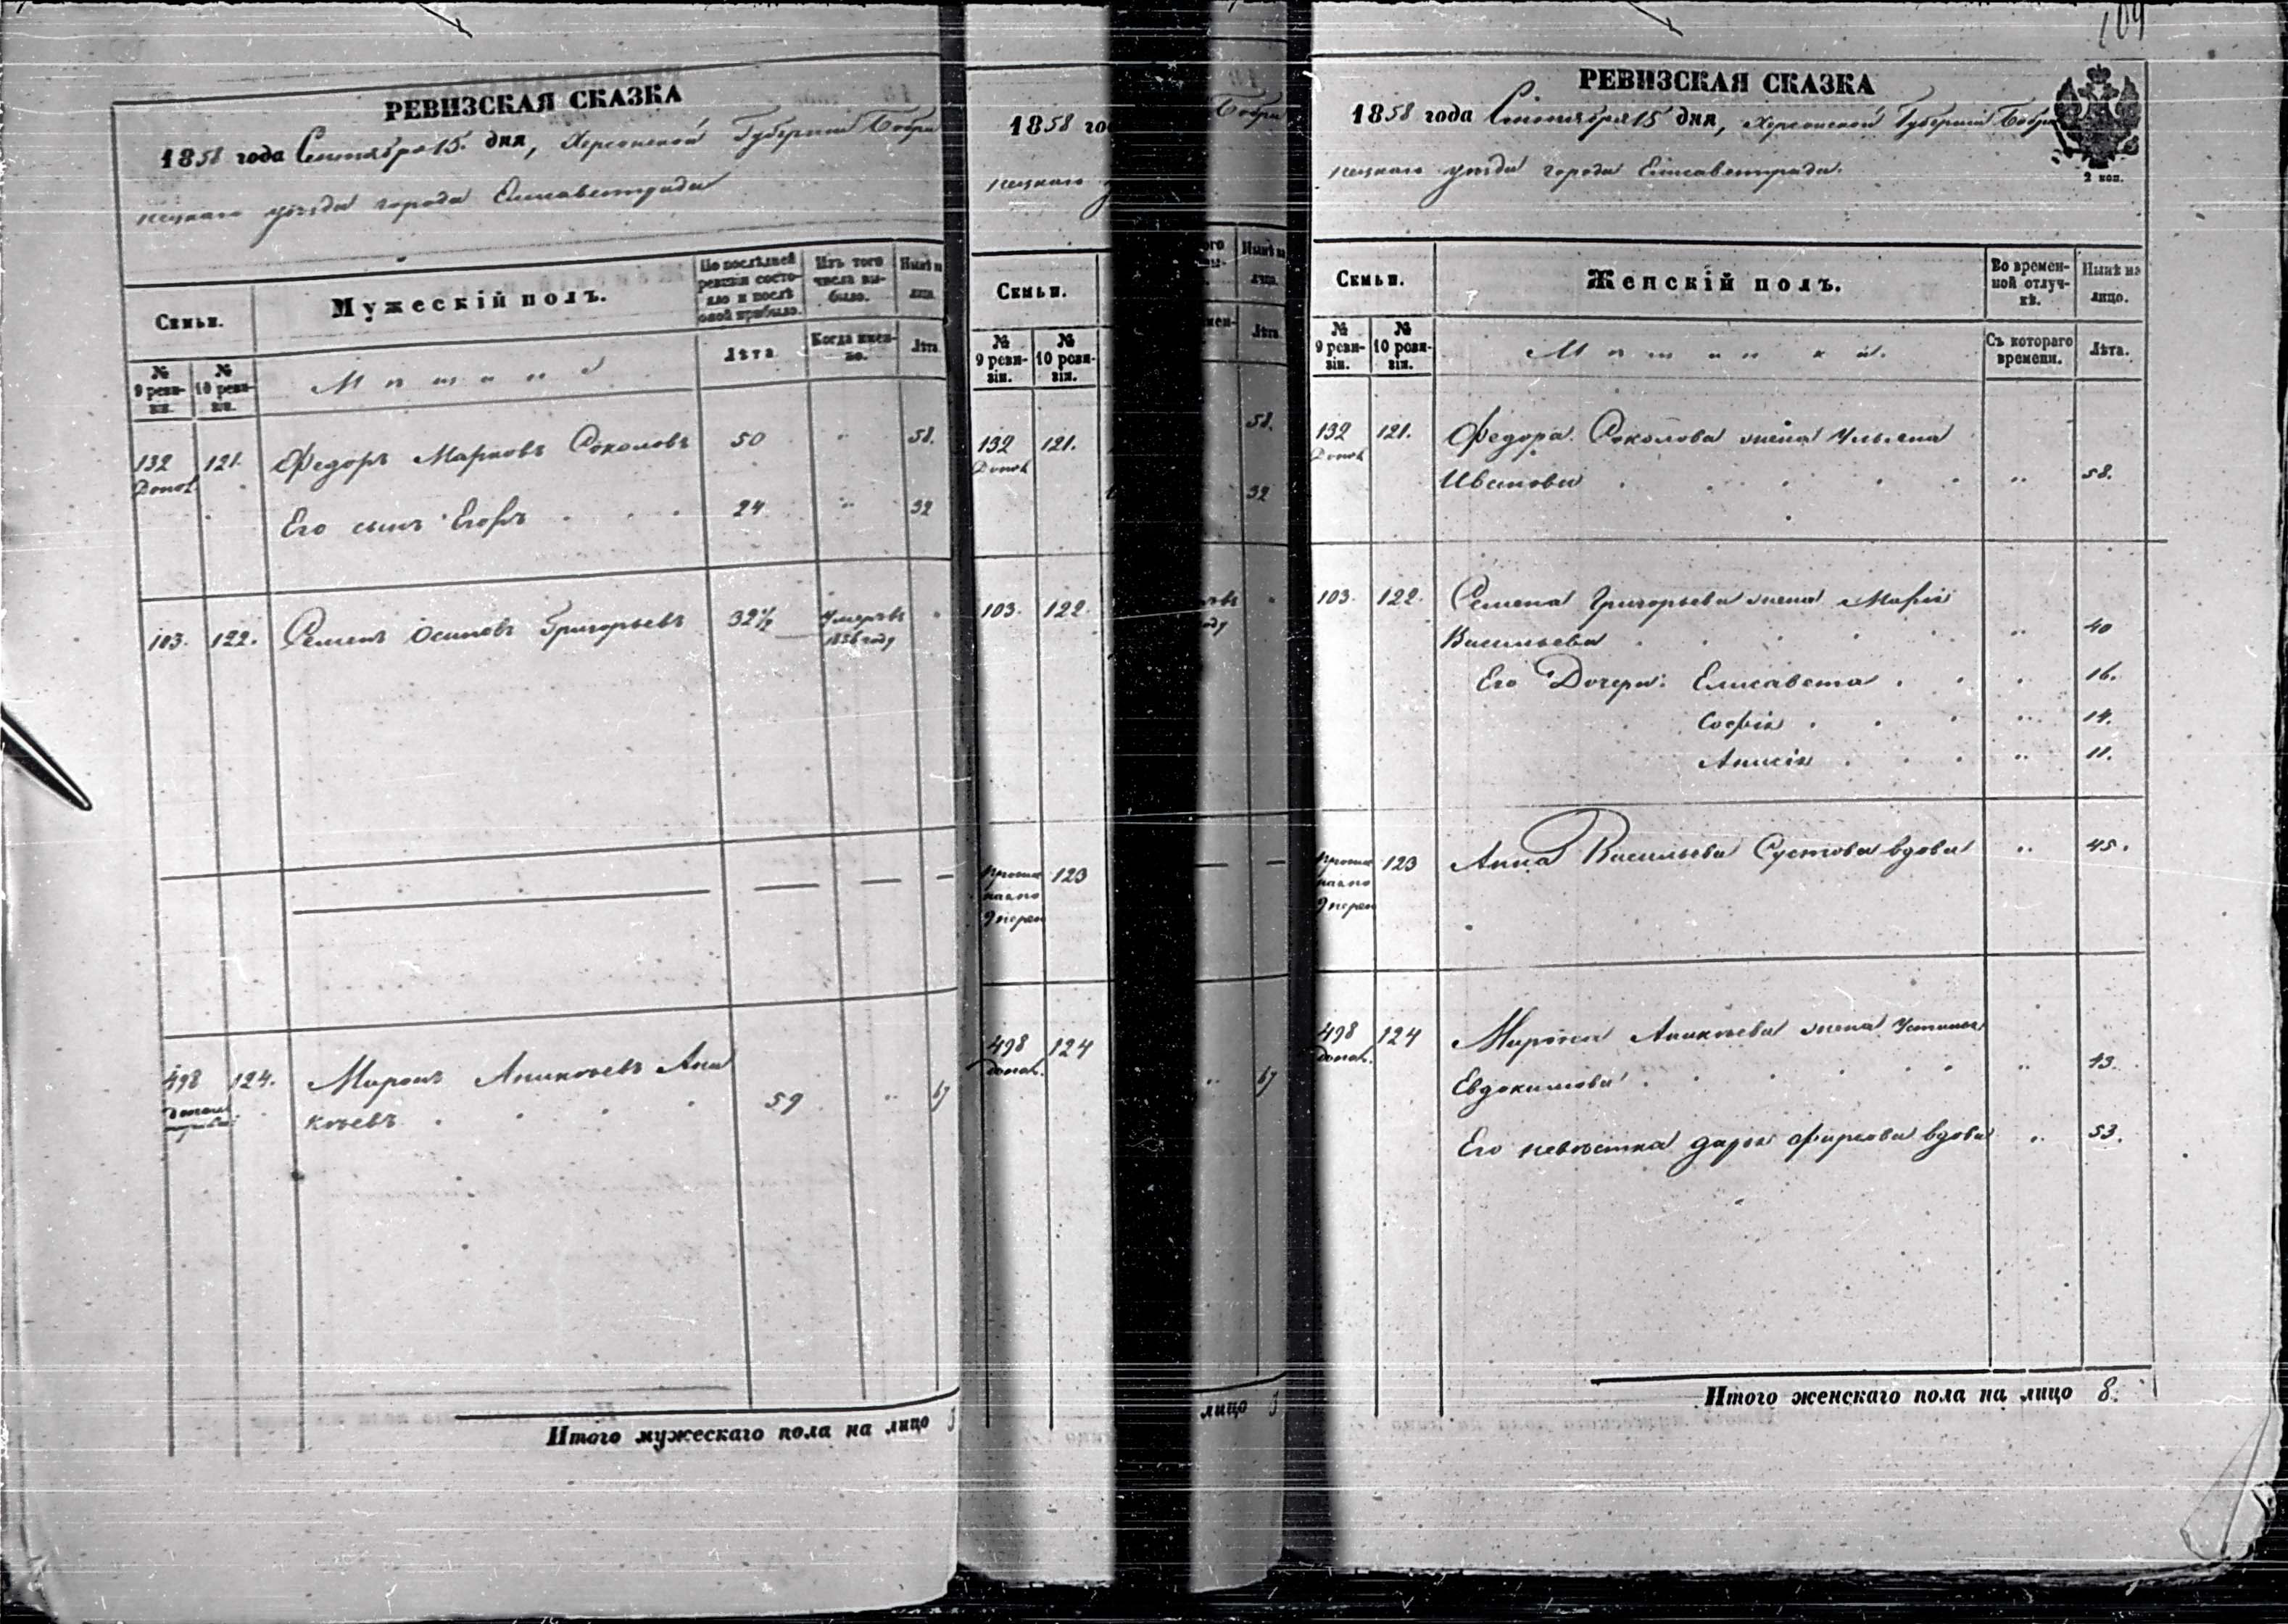 РЕВИЗСКАЯ СКАЗКА
1858 года Сентября 15 дня, Херсонской Губернии Бобри
нецкаго уезда города Елисаветграда
Семьи.
Мужескій полъ.
По послѣдней ревизіи состояло и послѣ оной прибыло.
Изъ того числа выбыло.
Нынѣ на лицо.
№ 9 ревизіи.
№ 10 ревизіи.
Мѣщане
Лѣта
Когда именно.
Лѣта
132 Допол. 121. Федоръ Марковъ Соколовъ 50 " 58.
Его сынъ Егоръ 24 " 32
103. 122. Семенъ Осиповъ Григорьевъ 32½ Умеръ въ 1856 году "
498 124. Миронъ Аникѣевъ Ани
кѣевъ 59 " 67
Итого мужескаго пола на лицо 3
1858 го
нецкаго у
Семьи.
№ 9 ревизіи.
№ 10 ревизіи.
132 Допол 121.
103. 122.
123
498 Допол. 124
Бобри
Нынѣ на лицо.
Лѣта
58.
32
67
лицо 3
109
РЕВИЗСКАЯ СКАЗКА
1858 года Сентября 15 дня, Херсонской Губерніи Бобри
нецкаго уѣзда города Елисаветграда.
2 коп.
Семьи.
Женскій полъ.
Во временной отлучкѣ.
Нынѣ на лицо.
№ 9 ревизіи.
№ 10 ревизіи.
Мѣщанки.
Съ котораго времени.
Лѣта.
132 Допол 121. Федора Соколова жена Ульяна
Иванова " 58.
103. 122. Семена Григорьева жена Марія
Васильева " 40
Его Дочери: Елисавета " 16.
Софія " 14.
Анисія " 11.
123 Анна Васильева Сустова вдова " 45.
498 Допол. 124 Мирона Аникѣева жена Устинья
Евдокимова " 43.
Его невѣстка Дарья Фирсова вдова " 53.
Итого женскаго пола на лицо 8.